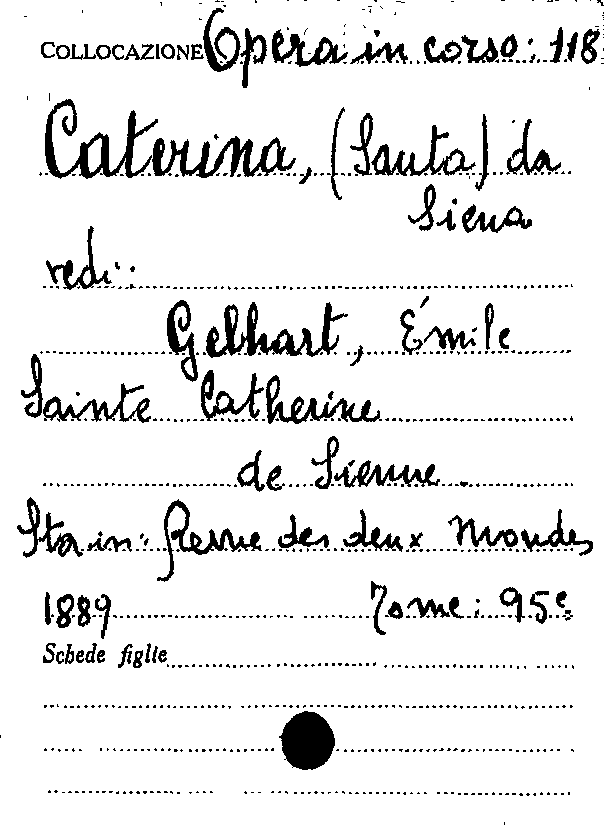 COLLOCAZIONE Opera in corso: 118
Caterina, (Santa) da
Siena
vedi:
Gebhart, Émile
Sainte Catherine
de Sienne.
Sta in: Revue des deux Mondes
1889 Tome: 95e.
Schede figlie